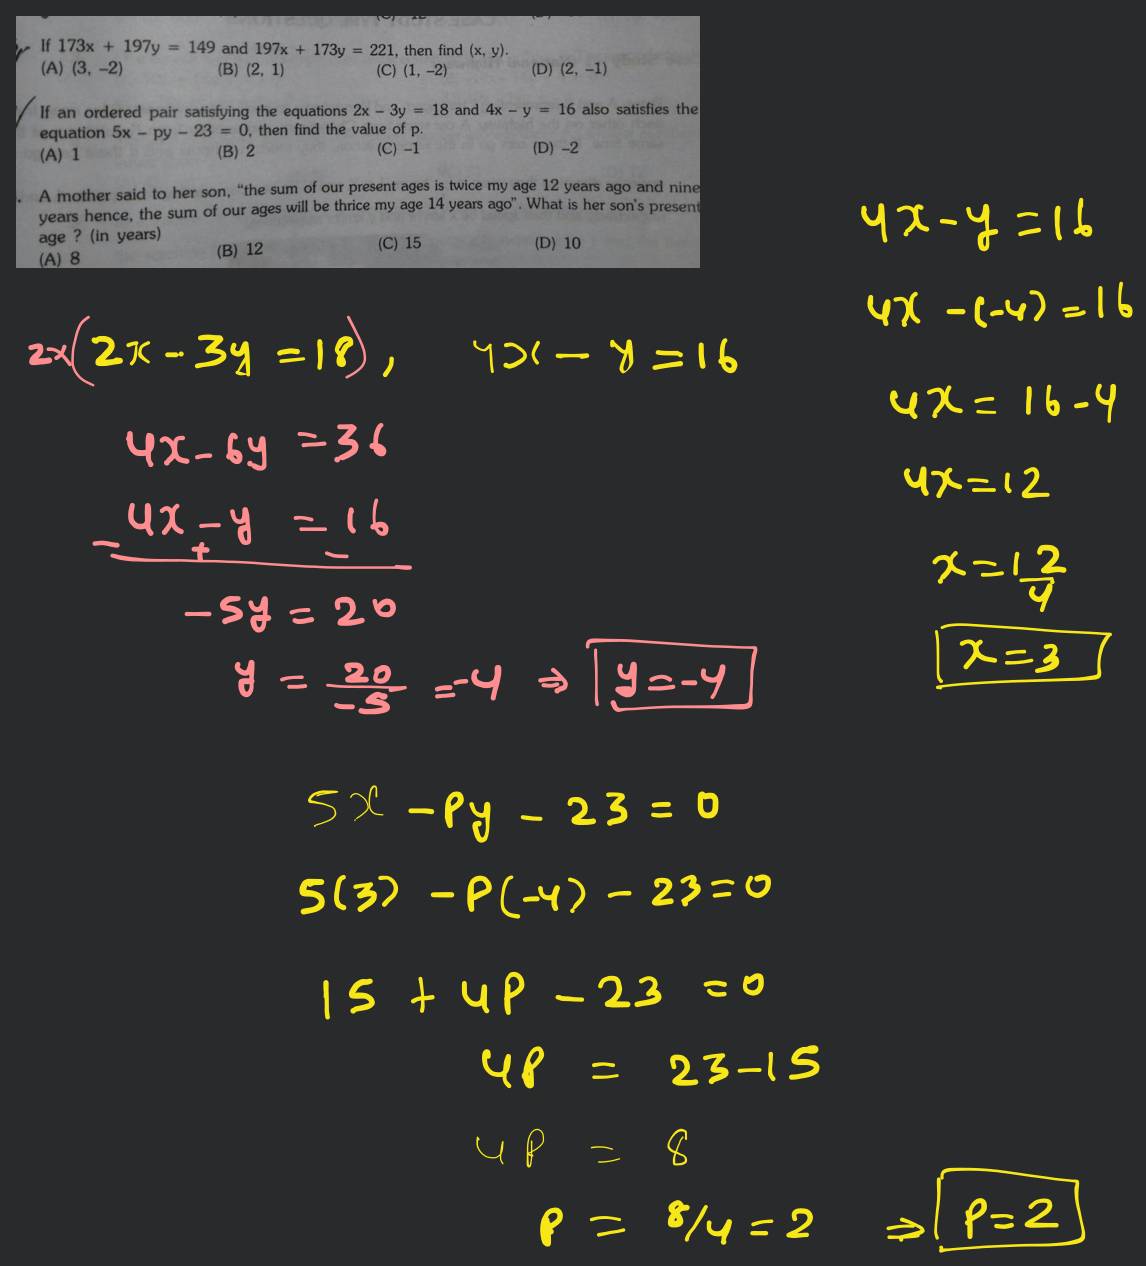 If 173x + 197y = 149 and 197x + 173y = 221, then find (x, y).
(A) (3, –2) (B) (2, 1) (C) (1, –2) (D) (2, –1)
If an ordered pair satisfying the equations 2x – 3y = 18 and 4x – y = 16 also satisfies the
equation 5x – py – 23 = 0, then find the value of p.
(A) 1 (B) 2 (C) –1 (D) –2
A mother said to her son, "the sum of our present ages is twice my age 12 years ago and nine
years hence, the sum of our ages will be thrice my age 14 years ago". What is her son's present
age ? (in years)
(A) 8 (B) 12 (C) 15 (D) 10
2x(2x - 3y = 18), 4x - y = 16
4x - 6y = 36
4x - y = 16
- + -
-5y = 20
y = 20/-5 = -4 ⇒ y = -4
4x - y = 16
4x - (-4) = 16
4x = 16 - 4
4x = 12
x = 12/4
x = 3
5x - Py - 23 = 0
5(3) - P(-4) - 23 = 0
15 + 4P - 23 = 0
4P = 23 - 15
4P = 8
P = 8/4 = 2 ⇒ P = 2